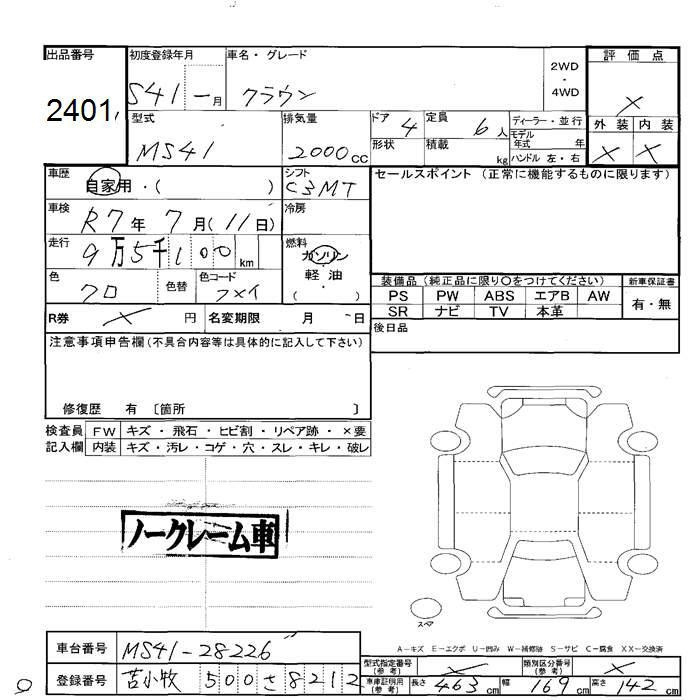 出品番号 初度登録年月 車名・グレード 2WD・4WD 評価点
2401 S41-月 クラウン ×
型式 排気量 ドア 4 定員 6人 ディーラー・並行 外装 内装
MS41 2000cc 形状 積載 kg モデル年式 年 ハンドル 左・右 × ×
車歴 自家用・( ) シフト C3MT セールスポイント (正常に機能するものに限ります)
車検 R7年7月(11日) 冷房
走行 9万5千100km 燃料 ガソリン・軽油 ( )
色 クロ 色替 色コード フメイ
装備品 (純正品に限り○をつけてください) 新車保証書
PS PW ABS エアB AW 有・無
SR ナビ TV 本革
R券 × 円 名変期限 月 日 後日品
注意事項申告欄(不具合内容等は具体的に記入して下さい)
修復歴 有 〔箇所 〕
検査員 FW キズ・飛石・ヒビ割・リペア跡・×要
記入欄 内装 キズ・汚レ・コゲ・穴・スレ・キレ・破レ
ノークレーム車
スペア
A-キズ E-エクボ U-凹み W-補修跡 S-サビ C-腐食 XX-交換済
車台番号 MS41-28226 型式指定番号(参考) × 類別区分番号(参考) ×
登録番号 苫小牧 500さ8212 車庫証明用(参考) 長さ 463cm 幅 169cm 高さ 142cm